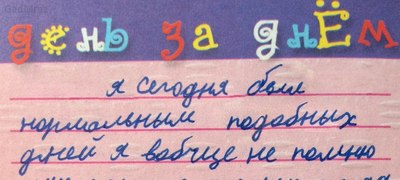 день за днЁм
я сегодня был
нормальным подобных
дней я вобчще не помню